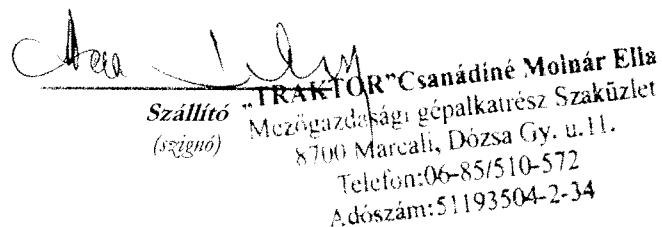 Szállító
(szignó)
„TRAKTOR"Csanádiné Molnár Ella
Mezőgazdasági gépalkatrész Szaküzlet
8700 Marcali, Dózsa Gy. u.11.
Telefon:06-85/510-572
Adószám:51193504-2-34